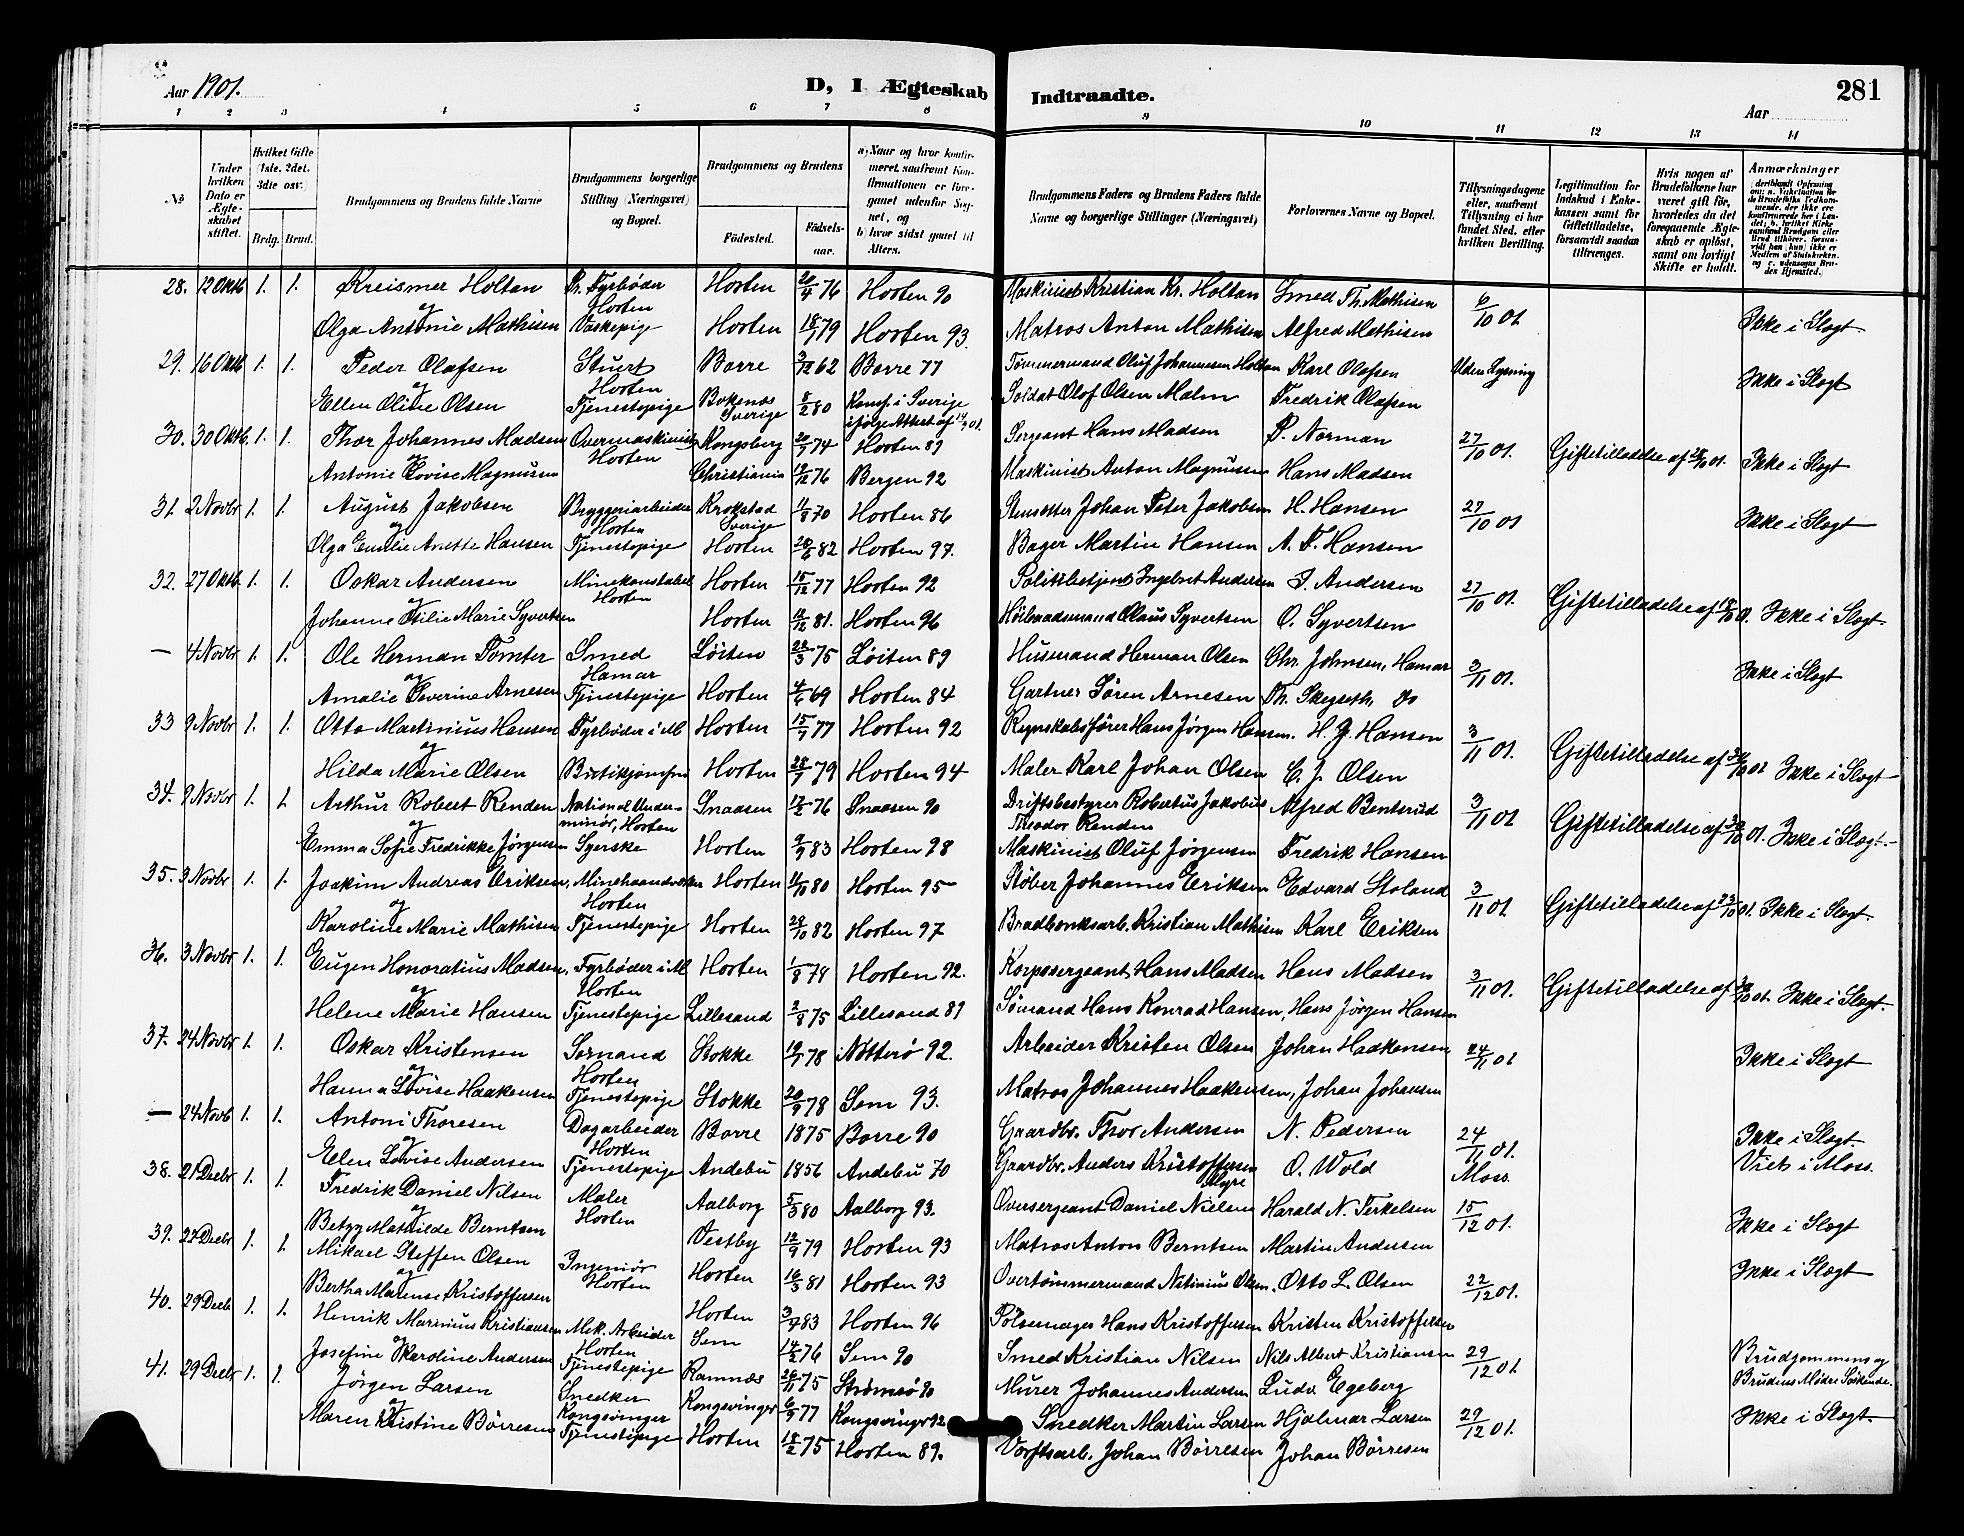 Aar 1901.
D, I Ægteskab Indtraadte.
281
Aar
1 2 3 4 5 6 7 8 9 10 11 12 13 14
No
Under hvilken Dato er Ægteskabet stiftet.
Hvilket Gifte (1ste, 2det, 3die osv.)
Brdg. Brud.
Brudgommens og Brudens fulde Navne
Brudgommens borgerlige Stilling (Næringsvei) og Bopæl.
Brudgommens og Brudens
Fødested.
Fødselsaar.
a) Naar og hvor konfirmeret, saafremt Konfirmationen er foregaaet udenfor Sognet, og
b) hvor sidst gaaet til Alters.
Brudgommens Faders og Brudens Faders fulde Navne og borgerlige Stillinger (Næringsvei)
Forlovernes Navne og Bopæl.
Tillysningsdagene eller, saafremt Tillysning ei har fundet Sted, efter hvilken Bevilling.
Legitimation for Indskud i Enkekassen samt for Giftetilladelse, forsaavidt saadan tiltrænges.
Hvis nogen af Brudefolkene har været gift før, hvorledes da det foregaaende Ægteskab er opløst, samt om lovligt Skifte er holdt.
Anmærkninger
28. 12 Oktb 1. 1. Kreismer Holtan Fyrbøder Horten Horten 20/4 76 Horten 90 Maskinist Kristian Kr. Holtan Smed Th. Mathisen 6/10 01.
og
Olga Antonie Mathisen Vaskepige Horten 18/7 79 Horten 93. Matros Anton Mathisen Alfred Mathisen Ikke i Slægt
29. 16 Oktb 1. 1. Peder Olafsen Stuert Horten Borre 3/12 62 Borre 77 Tømmermand Oluf Johannesen Holtan Karl Olafsen Uden Lysning
og
Ellen Oline Olsen Tjenestepige Bokenäs Sverige 8/2 80 Konf. i Sverige ifølge Attest af Soldat Olof Olsen Malm Fredrik Olafsen Ikke i Slægt
30. 30 Oktb. 1. 1. Thor Johannes Madsen Overmaskinist Horten Kongsberg 20/7 74 Horten 89 Sergeant Hans Madsen P. Norman 27/10 01. Giftetilladelse af 28/10 01. Ikke i Slægt
og
Antonie Lovise Magnusen Christiania 19/12 76 Bergen 92 Maskinist Anton Magnussen Hans Madsen
31. 2 Novbr 1. 1. August Jakobsen Bryggeriarbeider Horten Krokstad Sverige 11/8 70 Horten 86 Stensetter Johan Peter Jakobsen H. Hansen 27/10 01
og
Olga Emilie Anette Hansen Tjenestepige Horten 20/6 82 Horten 97. Bager Martin Hansen A. F. Hansen Ikke i Slægt
32. 27 Oktb. 1. 1. Oskar Andersen Minekonstabel Horten Horten 15/12 77 Horten 92 Politibetjent Ingebret Andersen J. Andersen 27/10 01. Giftetilladelse af 18/10 01. Ikke i Slægt.
og
Johanne Otilie Marie Syvertsen Horten 12/12 81. Horten 96 Høibaadsmand Olaus Syvertsen O. Syvertsen
— 4 Novbr 1. 1. Ole Herman Tomter Smed Hamar Løiten 22/3 75 Løiten 89 Husmand Herman Olsen Chr. Johnsen, Hamar 3/11 01.
og
Amalie Severine Arnesen Tjenestepige Horten 4/6 69 Horten 84 Gartner Søren Arnesen Th. Skogseth, do Ikke i Slægt
33 9 Novbr 1. 1. Otto Martinius Hansen Fyrbøder i M Horten 15/7 77 Horten 92 Regnskabsfører Hans Jørgen Hansen. H. J. Hansen 3/11 01. Giftetilladelse af 30/10 01 Ikke i Slægt
og
Hilda Marie Olsen Butikjomfru Horten 28/7 79 Horten 94 Maler Karl Johan Olsen C. J. Olsen
34. 9 Novbr 1. 1. Arthur Robert Renden National Underminør, Horten Snaasen 12/2 76 Snaasen 90 Driftsbestyrer Robertus Jakobus Theodor Renden Alfred Bentsrud 3/11 01 Giftetilladelse af 30/10 01. Ikke i Slægt.
og
Emma Sofie Fredrikke Jørgensen Syerske Horten 9/9 83 Horten 98 Maskinist Oluf Jørgensen Fredrik Hansen
35. 3 Novbr 1. 1. Joakim Andreas Eriksen, Minehaandverker Horten Horten 11/11 80 Horten 95 Støber Johannes Eriksen Edvard Stoland 3/11 01. Giftetilladelse af 23/10 01. Ikke i Slægt.
og
Karoline Marie Mathisen Tjenestepige Horten 29/10 82 Horten 97 Bradbænksarb. Kristian Mathisen Karl Eriksen
36. 3 Novbr 1. 1. Eugen Honoratius Madsen, Fyrbøder i M Horten Horten 1/8 78 Horten 92. Korpssergeant Hans Madsen Hans Madsen 3/11 01. Giftetilladelse af 01. Ikke i Slægt.
og
Helene Marie Hansen Tjenestepige Lillesand 2/8 75 Lillesand 89 Sømand Hans Konrad Hansen, Hans Jørgen Hansen
37. 24 Novbr 1. 1. Oskar Kristensen Sømand Horten Stokke 19/7 78 Nøtterø 92. Arbeider Kristen Olsen Johan Haakensen 24/11 01 Ikke i Slægt
og
Hanna Lovise Haakensen Tjenestepige Stokke 20/9 78 Sem 93. Matros Johannes Haakensen, Johan Johansen
— 24 Novb 1. 1. Antoni Thoresen Dagarbeider Horten Borre 1875 Borre 90 Gaardbr. Thor Andersen N. Pedersen 24/11 01. Moss. Ikke i Slægt. Viet i Moss.
og
Ellen Lovise Andersen Tjenestepige Andebu 1856 Andebu 70 Gaardbr. Anders Kristoffersen Myre O. Wold
38. 21 Decbr 1. 1. Fredrik Daniel Nilsen Maler Horten Aalborg 5/5 80 Aalborg 93. Oversergeant Daniel Nielsen Harald N. Terkelsen 15/12 01.
og
Betzy Mathilde Berntsen Vestby 12/9 79 Horten 93 Matros Anton Berntsen Martin Andersen Ikke i Slægt
39. 22 Decbr 1. 1. Mikael Steffen Olsen Ingeniør Horten Horten 16/3 81 Horten 93 Overtømmermand Nitinius Olsen. Otto L. Olsen 22/12 01. Ikke i Slægt
og
Bertha Marense Kristoffersen Horten 3/7 83 Horten 96 Pølsemager Hans Kristoffersen Kristen Kristoffersen
40. 29 Decb 1. 1. Henrik Marinius Kristiansen Mek. Arbeider Horten Sem 14/2 76 Sem 90 Smed Kristian Nilsen Nils Albert Kristiansen 29/12 01. Brudgommens og Brudens Mødre Søskende.
og
Josefine Karoline Andersen Tjenestepige Ramnæs 26/11 75 Strømsø 90 Murer Johannes Andersen Ludv Egeberg
41. 29 Decbr 1. 1. Jørgen Larsen Snedker Kongsvinger Kongsvinger 6/7 77 Kongsvinger 92 Snedker Martin Larsen Hjalmar Larsen 29/12 01. Ikke i Slægt.
og
Maren Kristine Børresen Tjenestepige Horten 18/2 75 Horten 89. Værftsarb. Johan Børresen Johan Børresen